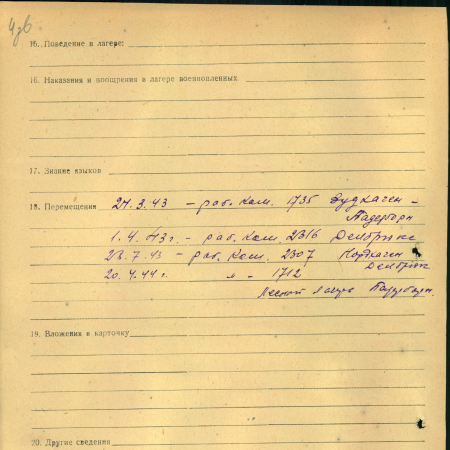 15. Поведение в лагере:
16. Наказания и поощрения в лагере военнопленных
17. Знание языков
18. Перемещения 27.3.43 – раб. ком. 1735 –
Падерборн
1.4.43г. – раб. ком. 2316 Дельбрюкс
23.7.43 – раб. ком. 2307
Дельбрюк
20.4.44г. " – 1712
Лесной лагерь Падерборн.
19. Вложения в карточку
20. Другие сведения